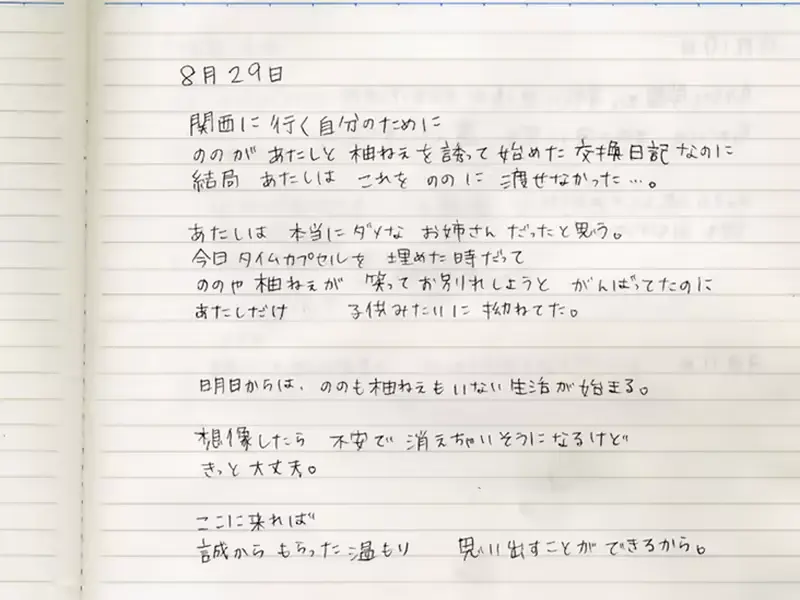 8月29日
関西に行く自分のために
ののがあたしと柚ねえを誘って始めた交換日記なのに
結局 あたしは これを ののに 渡せなかった…。
あたしは 本当にダメな お姉さんだったと思う。
今日タイムカプセルを 埋めた時だって
ののや柚ねえが 笑ってお別れしようと がんばってたのに
あたしだけ 子供みたいに拗ねてた。
明日からは、ののも柚ねえもいない生活が始まる。
想像したら 不安で 消えちゃいそうになるけど
きっと大丈夫。
ここに来れば
誠からもらった温もり 思い出すことができるから。